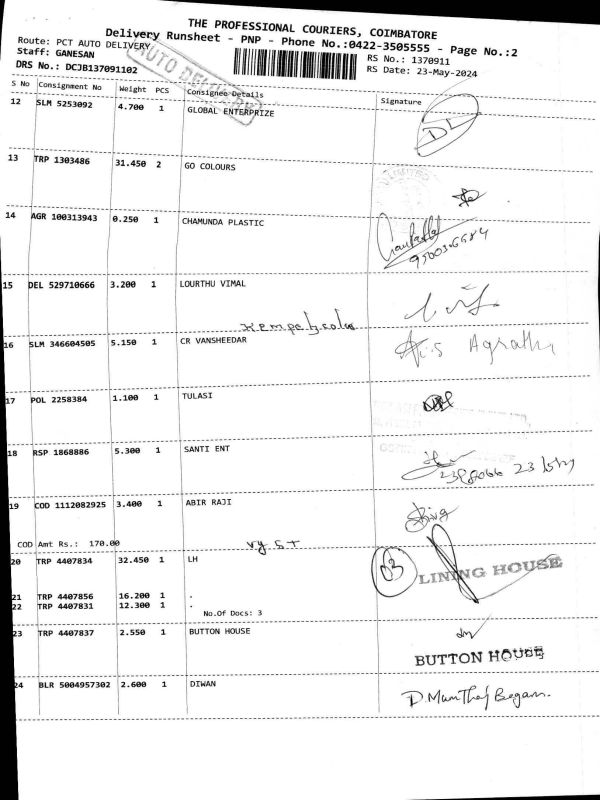 THE PROFESSIONAL COURIERS, COIMBATORE
Delivery Runsheet - PNP - Phone No.:0422-3505555 - Page No.:2
Route: PCT AUTO DELIVERY
RS No.: 1370911
Staff: GANESAN
RS Date: 23-May-2024
DRS No.: DCJB137091102
AUTO DELIVERY
S No Consignment No Weight PCS Consignee Details Signature
12 SLM 5253092 4.700 1 GLOBAL ENTERPRIZE
13 TRP 1303486 31.450 2 GO COLOURS
14 AGR 100313943 0.250 1 CHAMUNDA PLASTIC
15 DEL 529710666 3.200 1 LOURTHU VIMAL
16 SLM 346604505 5.150 1 CR VANSHEEDAR
17 POL 2258384 1.100 1 TULASI
18 RSP 1868886 5.300 1 SANTI ENT
19 COD 1112082925 3.400 1 ABIR RAJI
COD Amt Rs.: 170.00
20 TRP 4407834 32.450 1 LH
LINING HOUSE
21 TRP 4407856 16.200 1 .
22 TRP 4407831 12.300 1 .
No.Of Docs: 3
23 TRP 4407837 2.550 1 BUTTON HOUSE
BUTTON HOUSE
24 BLR 5004957302 2.600 1 DIWAN
D. Mumthaj Begam.